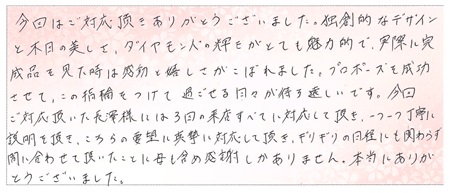 今回はご対応頂きありがとうございました。独創的なデザイン
と木目の美しさ、ダイヤモンドの輝きがとても魅力的で、実際に完
成品を見た時は感動と嬉しさがこぼれました。プロポーズを成功
させて、この指輪をつけて過ごせる日々が待ち遠しいです。今回
ご対応頂いた長澤様には3回の来店すべてに対応して頂き、一つ一つ丁寧に
説明を頂き、こちらの要望に真摯に対応して頂き、ギリギリの日程にも関わらず
間に合わせて頂いたことに母も含め感謝しかありません。本当にありが
とうございました。